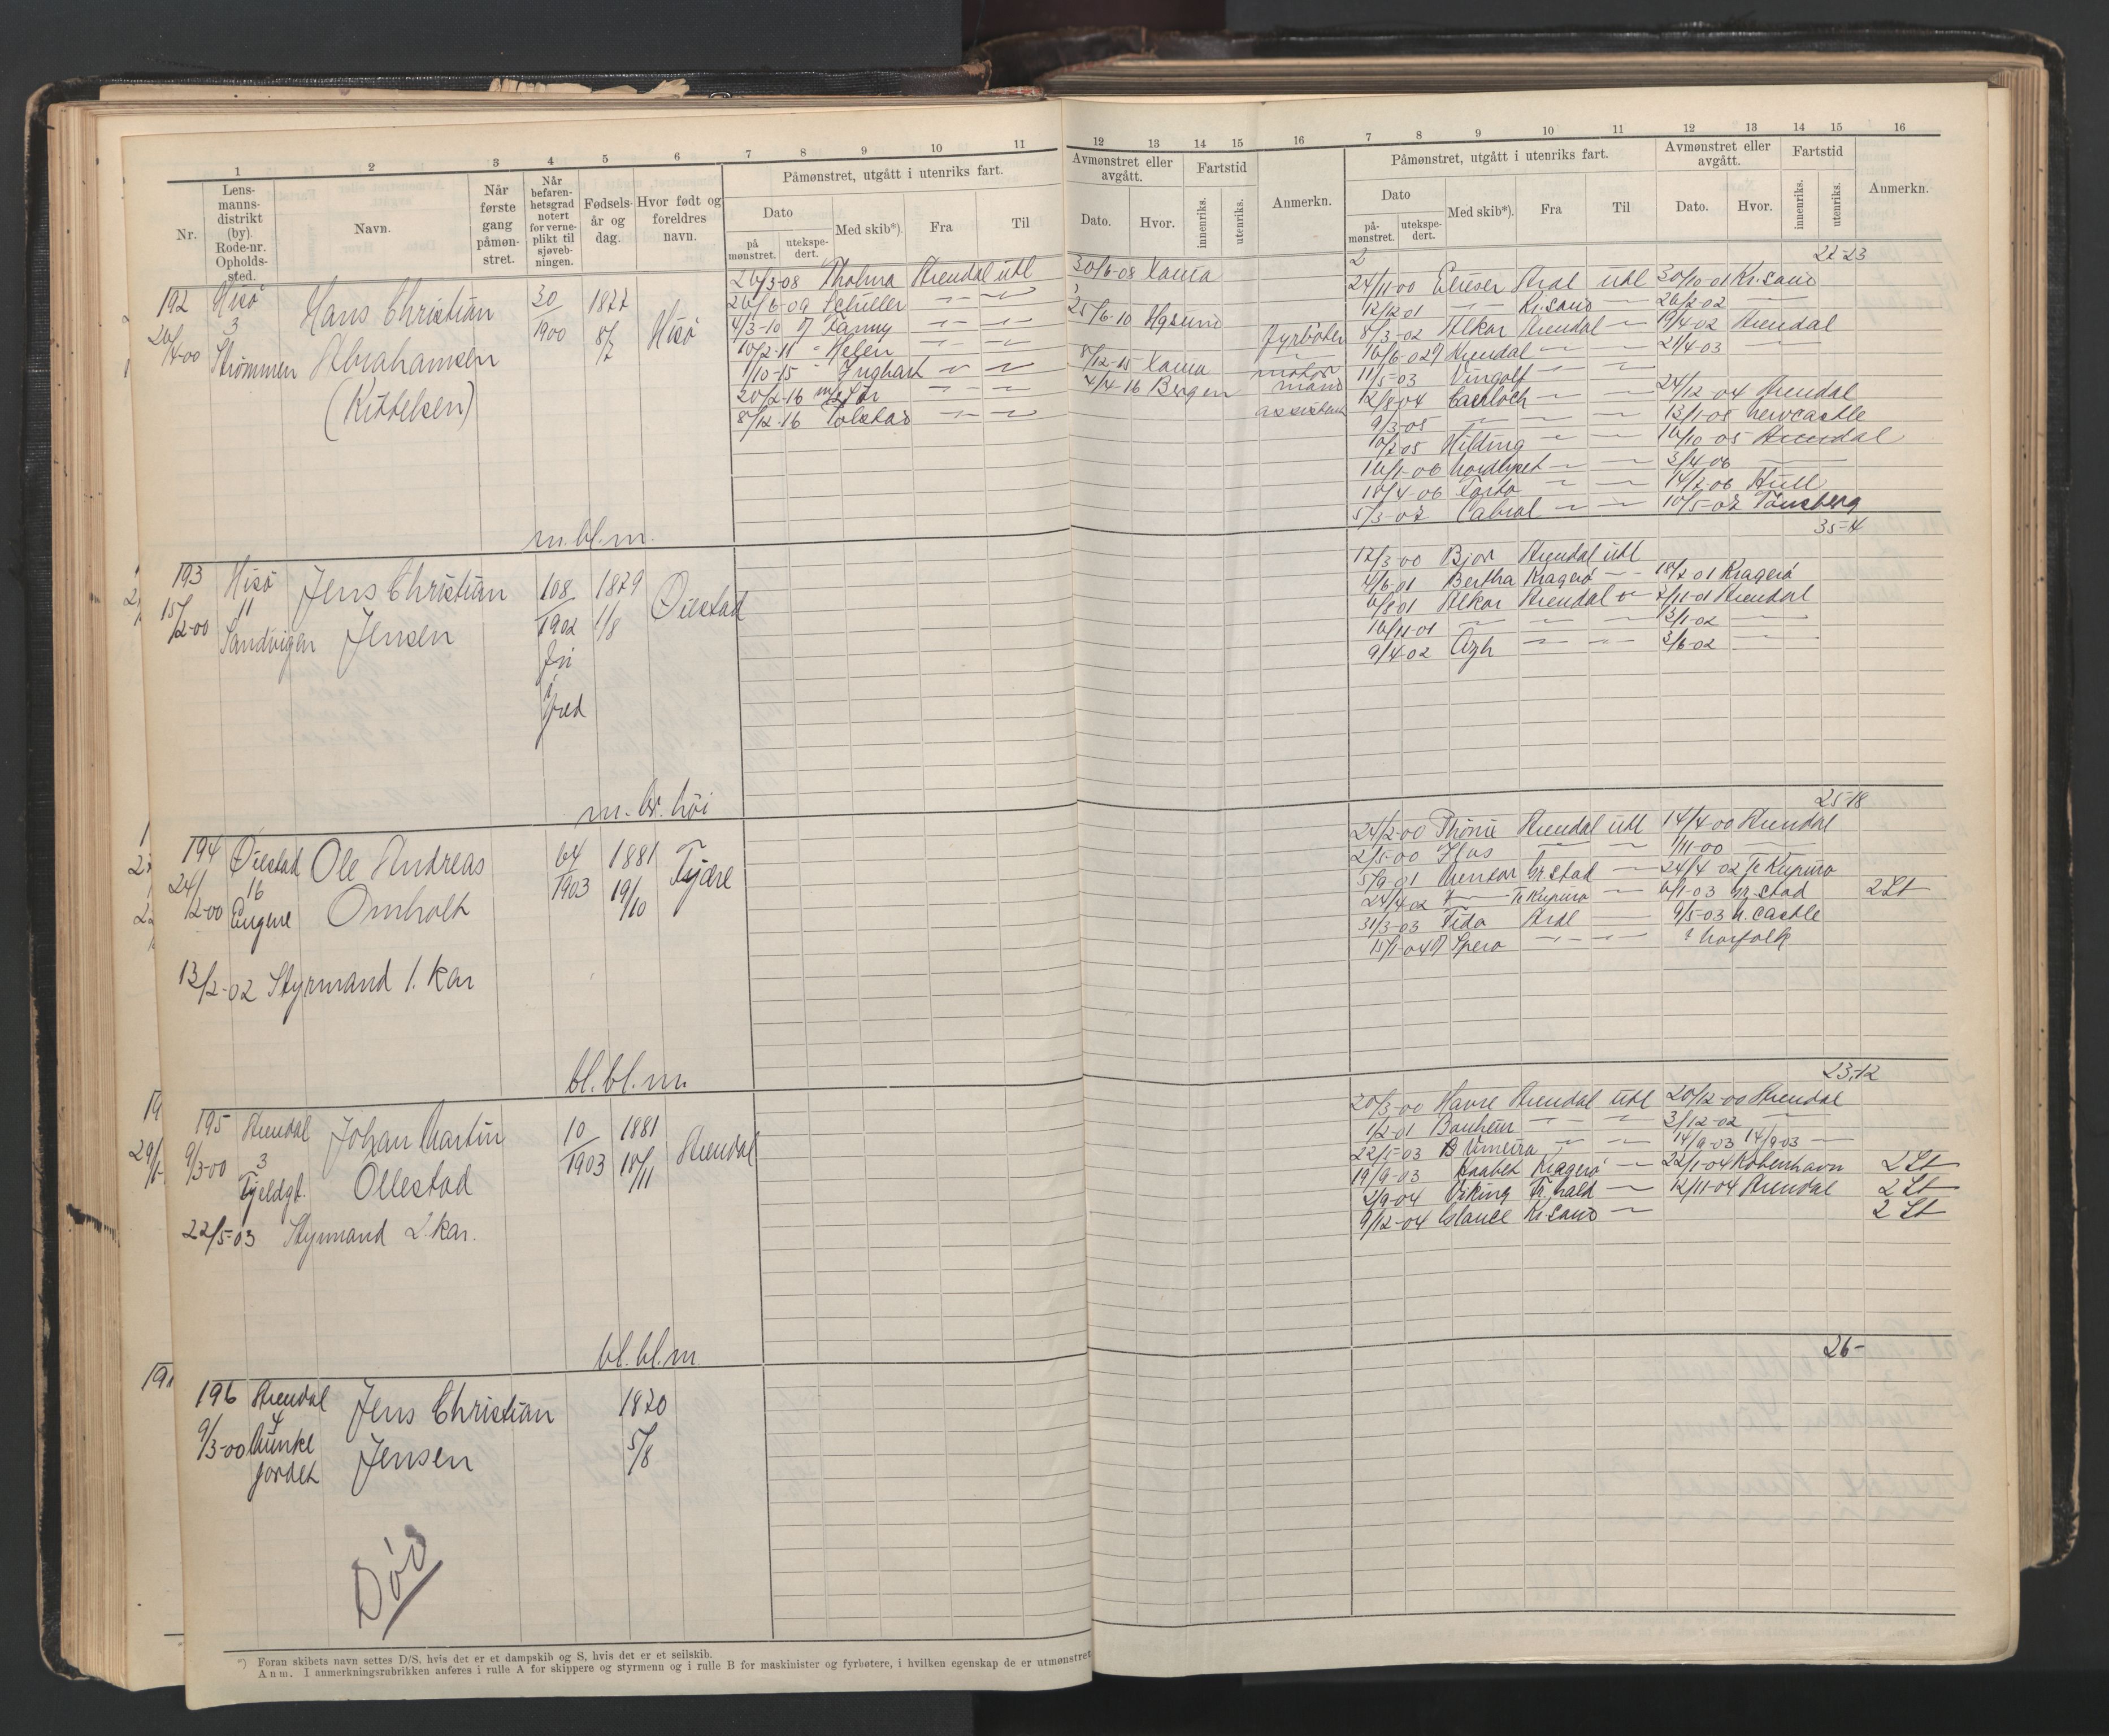 1 2 3 4 5 6 7 8 9 10 11 12 13 14 15 16 7 8 9 10 11 12 13 14 15 16
Nr.
Lens-
manns-
distrikt
(by).
Rode-nr.
Opholds-
sted.
Navn.
Når
første
gang
påmøn-
stret.
Når
befaren-
hetsgrad
notert
for verne-
plikt til
sjøveb-
ningen.
Fødsels-
år og
dag.
Hvor født og
foreldres
navn.
Påmønstret, utgått i utenriks fart.
Dato
på
mønstret.
utekspe-
dert.
Med skib*).
Fra
Til
Avmønstret eller
avgått.
Dato.
Hvor.
Fartstid
innenriks.
utenriks.
Anmerkn.
Påmønstret, utgått i utenriks fart.
Dato
på-
mønstret.
utekspe-
dert.
Med skib*).
Fra
Til
Avmønstret eller
avgått.
Dato.
Hvor.
Fartstid
innenriks.
utenriks.
Anmerkn.
192 Hisö Hans Christian 30/1900 1877 8/7 Hisö
26/4-00 3 Strømmen Abrahamsen
(Kittelsen)
26/3-08 Thalma Arendal utl 30/6-08
26/6-09 Schuller
4/3-10 Fanny 25/6-10 Hgsund
10/2-11 Helen fyrböter
1/10-15 Inghart 8/12-15
20/2-16 4/4-16 Bergen motormand
8/12-16 Tolstad assistent
22-23
24/11-00 Elieser Aral utl 30/10-01 Kr.sand
12/12 01 Kr.sand 26/2-02
8/3-02 Alkar Arendal 19/4-02 Arendal
16/6-02 Arendal 21/4-03
11/5-03 Vingolf
12/8-04 24/12-04 Arendal
9/3-05 13/1-05 Newcastle
10/7 05 Hilding 16/10-05 Arendal
16/1-06 3/4-06
18/4-06 14/7-06 Hull
5/3-07 Cabral 10/5-07 Tönsberg
m.bl.m.
35-4
193 Hisö Jens Christian 108/1902 1879 1/8 Öiestad
15/2-00 11 Sandvigen Jensen
fri
i
fred
17/3-00 Bjor Arendal utl
4/6-01 Bertha Kragerö 18/7-01 Kragerö
6/8 01 Alkar Arendal 7/11-01 Arendal
16/11-01 13/1-02
9/4-02 3/6-02
m. br. höi
25-18
194 Öiestad Ole Andreas 64/1903 1881 19/10 Tjøre
24/2-00 16 Engene Omholt
13/2-02 Styrmand 1. kar
24/2-00 Thönie Arendal utl 14/4-00 Arendal
2/5-00 1/11-00
5/9-01 Mentor Gr.stad 24/4-02
24/4 02 6/1-03 Gr.stad 2 St
31/3-03 Tida Ardl 9/5-03 N.castle
15/1-04 Spero ? Norfolk
bl. bl. m.
23-12
195 Arendal Johan Martin 10/1903 1881 18/11 Arendal
9/3-00 3 Tjeldgt. Ollestad
22/5-03 Styrmand 2. kar.
20/3-00 Havre Arendal utl 20/12-00 Arendal
1/2-01 Bauhein 3/12-02
22/5-03 B Vimeira 14/9-03 14/9-03
19/9-03 Kragerö 22/1-04 Köbenhavn 2 St
2/9-04 Viking Fr.hald 12/11-04 Arendal 2 St
9/12-04 Glance Kr.sand 2 St
bl. bl. m
26-
196 Arendal Jens Christian 1870 5/8
9/3-00 4 Munkejordet Jensen
Död
*) Foran skibets navn settes D/S, hvis det er et dampskib og S, hvis det er et seilskib.
Anm. I anmerkningsrubrikken anføres i rulle A for skippere og styrmenn og i rulle B for maskinister og fyrbøtere, i hvilken egenskap de er utmønstret